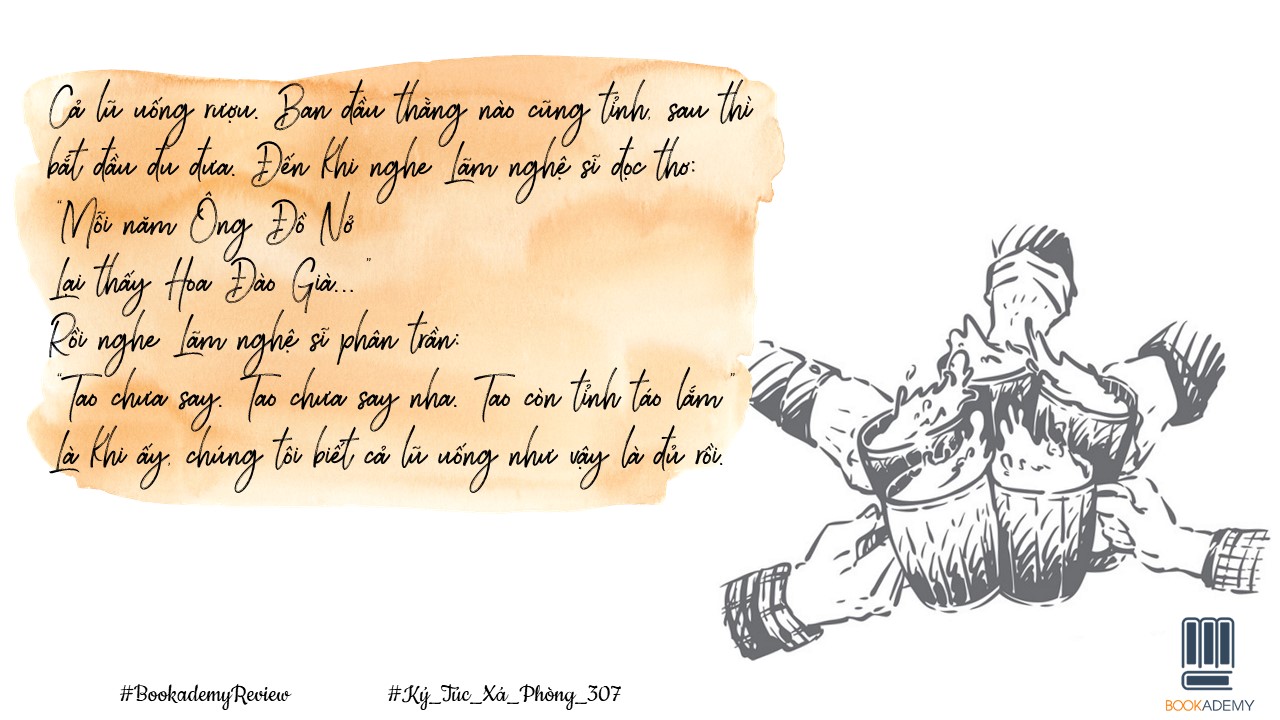 Cả lũ uống rượu. Ban đầu thằng nào cũng tỉnh, sau thì
bắt đầu đu đưa. Đến khi nghe Lãm nghệ sĩ đọc thơ:
"Mỗi năm Ông Đồ Nở
Lại thấy Hoa Đào Già... "
Rồi nghe Lãm nghệ sĩ phân trần:
"Tao chưa say. Tao chưa say nha. Tao còn tỉnh táo lắm "
Là khi ấy, chúng tôi biết cả lũ uống như vậy là đủ rồi.
#BookademyReview
#Ký_Túc_Xá_Phòng_307
BOOKADEMY